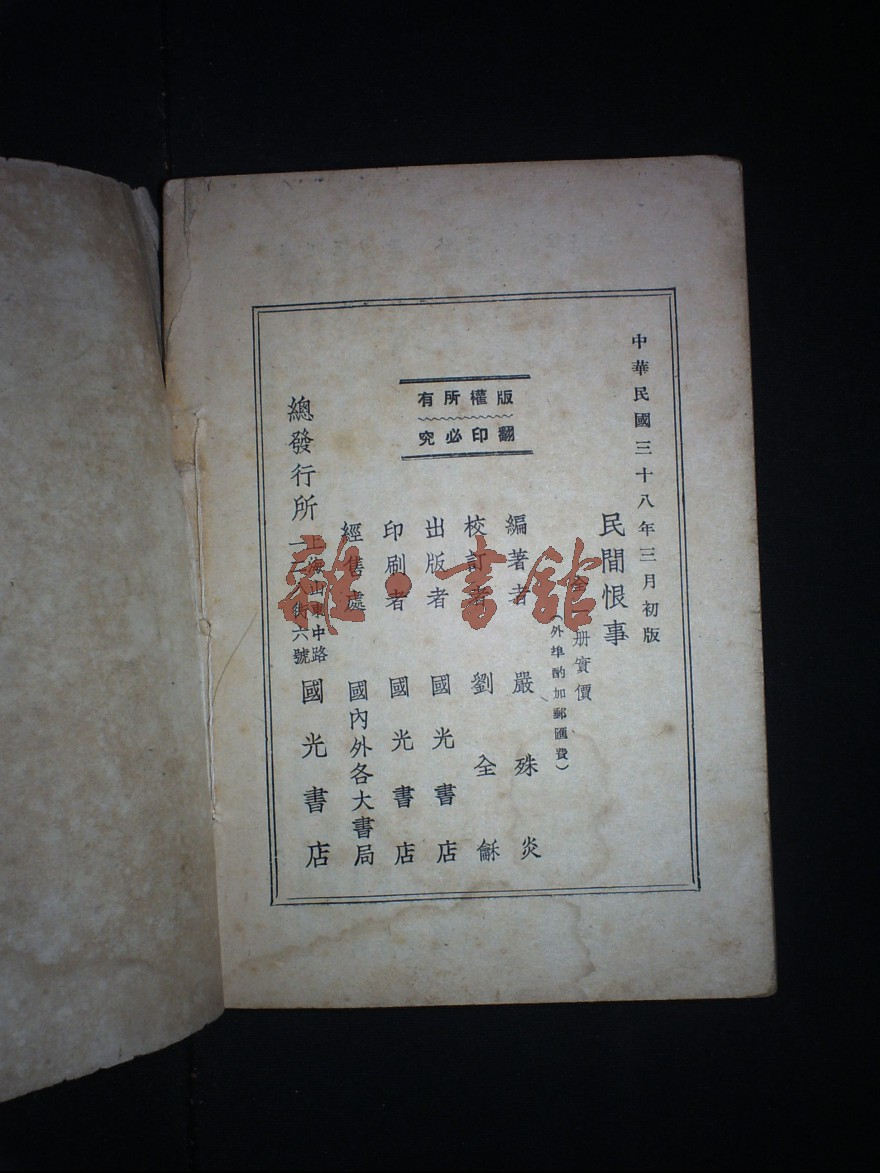 中華民國三十八年三月初版
民間恨事
全一册實價
(外埠酌加郵匯費)
版權所有
翻印必究
編著者 嚴殊炎
校訂者 劉全龢
出版者 國光書店
印刷者 國光書店
經售處 國內外各大書局
總發行所
上海山東中路
一二八街六號
國光書店
雜·書館